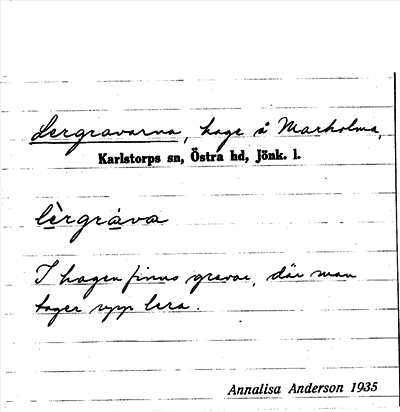 Lergravarna, hage å Marholma,
Karlstorps sn, Östra hd, Jönk. l.
lèrgràva
I hagen finns gravar, där man
tager upp lera.
Annalisa Anderson 1935